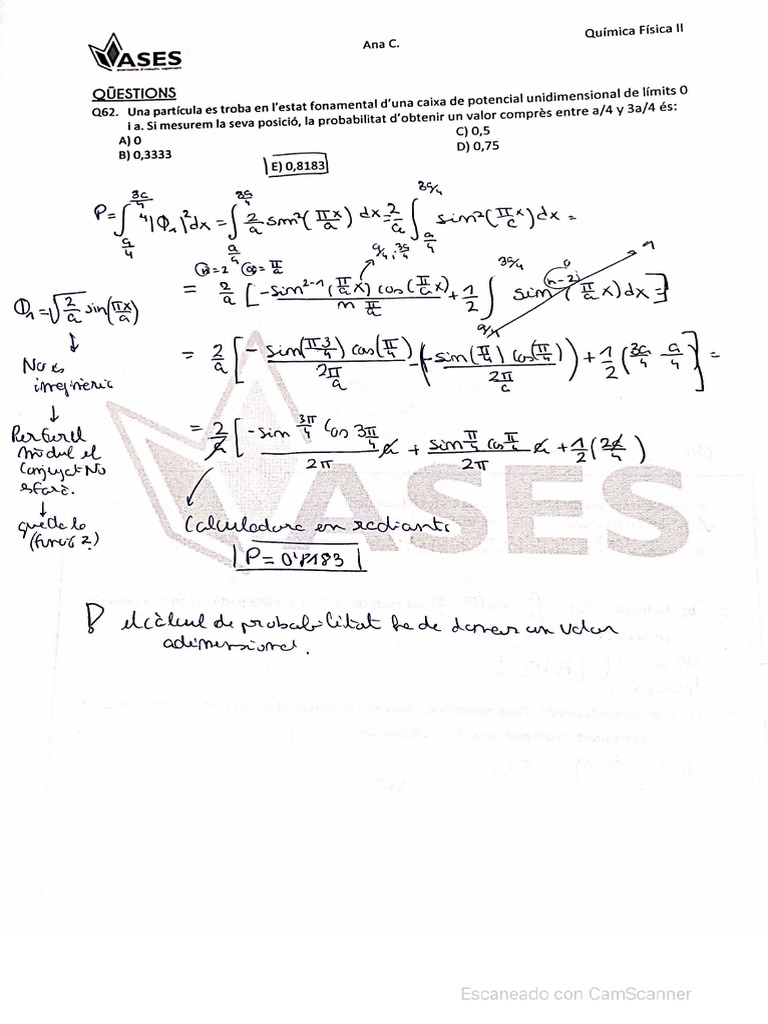 Química Física II
Ana C.
ASES
QÜESTIONS
Q62. Una partícula es troba en l'estat fonamental d'una caixa de potencial unidimensional de límits 0
i a. Si mesurem la seva posició, la probabilitat d'obtenir un valor comprès entre a/4 y 3a/4 és:
A) 0
C) 0,5
B) 0,3333
D) 0,75
E) 0,8183
P = ∫_{a/4}^{3a/4} |Φ₁|² dx = ∫_{a/4}^{3a/4} 2/a sin²(πx/a) dx = 2/a ∫_{a/4}^{3a/4} sin²(πx/a) dx =
n=2 a=π/a
a/4, 3a/4
= 2/a [ -sin²⁻¹(π/a x) cos(π/a x) / n π/a + 1/2 ∫_{a/4}^{3a/4} sin^(n-2)(π/a x) dx ] =
0
1
Φ₁ = √(2/a) sin(πx/a)
↓
No es
imaginaria
↓
Per fer el
mòdul el
conjugat No
es farà.
↓
queda la
(funció 2)
= 2/a [ -sin(π 3/4) cos(π/4) / 2π/a - (-sin(π/4) cos(π/4) / 2π/a) + 1/2 (3a/4 a/4) ] =
= 2/a [ -sin 3π/4 cos 3π/4 / 2π a + sin π/4 cos π/4 / 2π a + 1/2 (2a/4)
Calculadora en radiants
P = 0'8183
! el càlcul de probabilitat ha de donar un valor
adimensional.
ASES
Escaneado con CamScanner